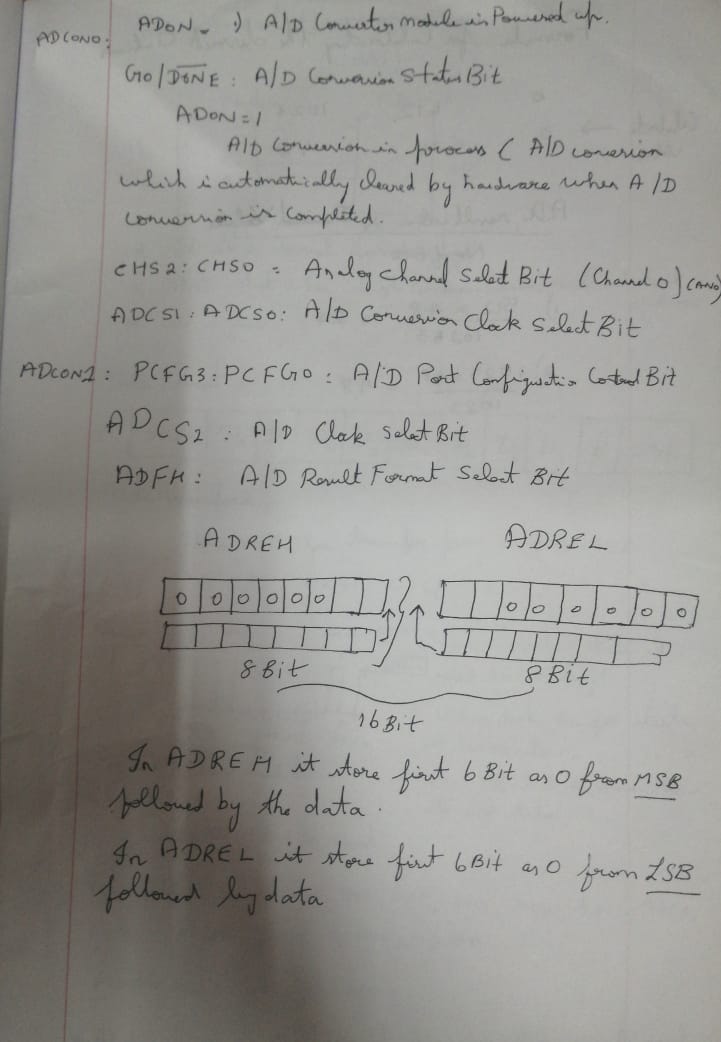 ADCON0: ADON - 1) A/D Converter Module is Powered up.
GO/DONE : A/D Conversion Status Bit
ADON = 1
A/D Conversion in process ( A/D conversion
which is automatically cleared by hardware when A/D
conversion is completed.
CHS2 : CHS0 = Analog Channel Select Bit (Channel 0) (AN0)
ADCS1 : ADCS0 : A/D Conversion Clock Select Bit
ADCON1 : PCFG3 : PCFG0 : A/D Port Configuration Control Bit
ADCS2 : A/D Clock Select Bit
ADFM : A/D Result Format Select Bit
ADREH ADREL
0 0 0 0 0 0 0 0 0 0 0 0
8 Bit 8 Bit
16 Bit
In ADREH it store first 6 Bit as 0 from MSB
followed by the data.
In ADREL it store first 6 Bit as 0 from LSB
followed by data